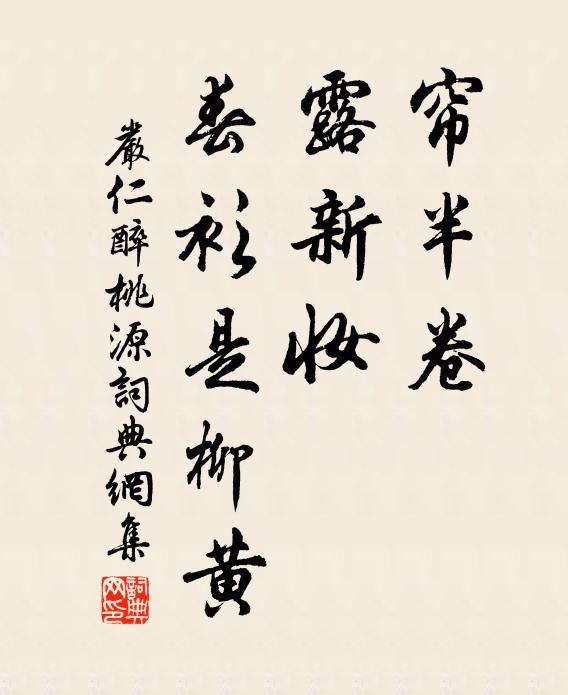 帘半卷
露新妆
春衫是柳黄
嚴仁醉桃源詞典網集
詞典網印